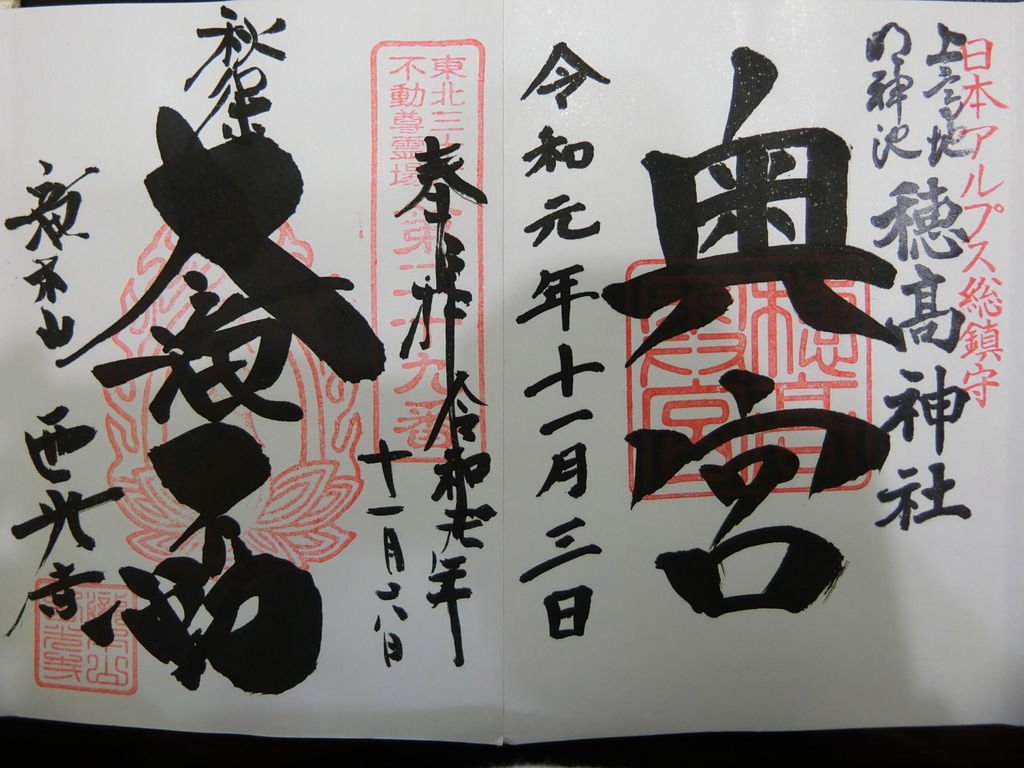 日本アルプス総鎮守
上高地
明神池
穂高神社
奥宮
令和元年十一月三日
東北三十六
不動尊霊場
第二十九番
奉拝
令和元年
十一月六日
秋保
大滝不動
滝本山 西光寺